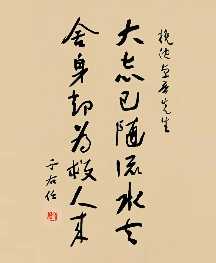 挽
先生
大志已随流水去
舍身却为救人来
于右任